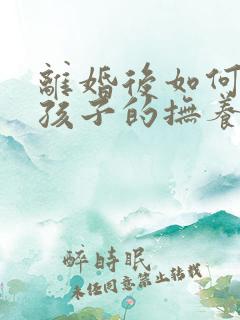 離婚後如何
孩子的撫養
醉時眠
未經同意禁止轉載